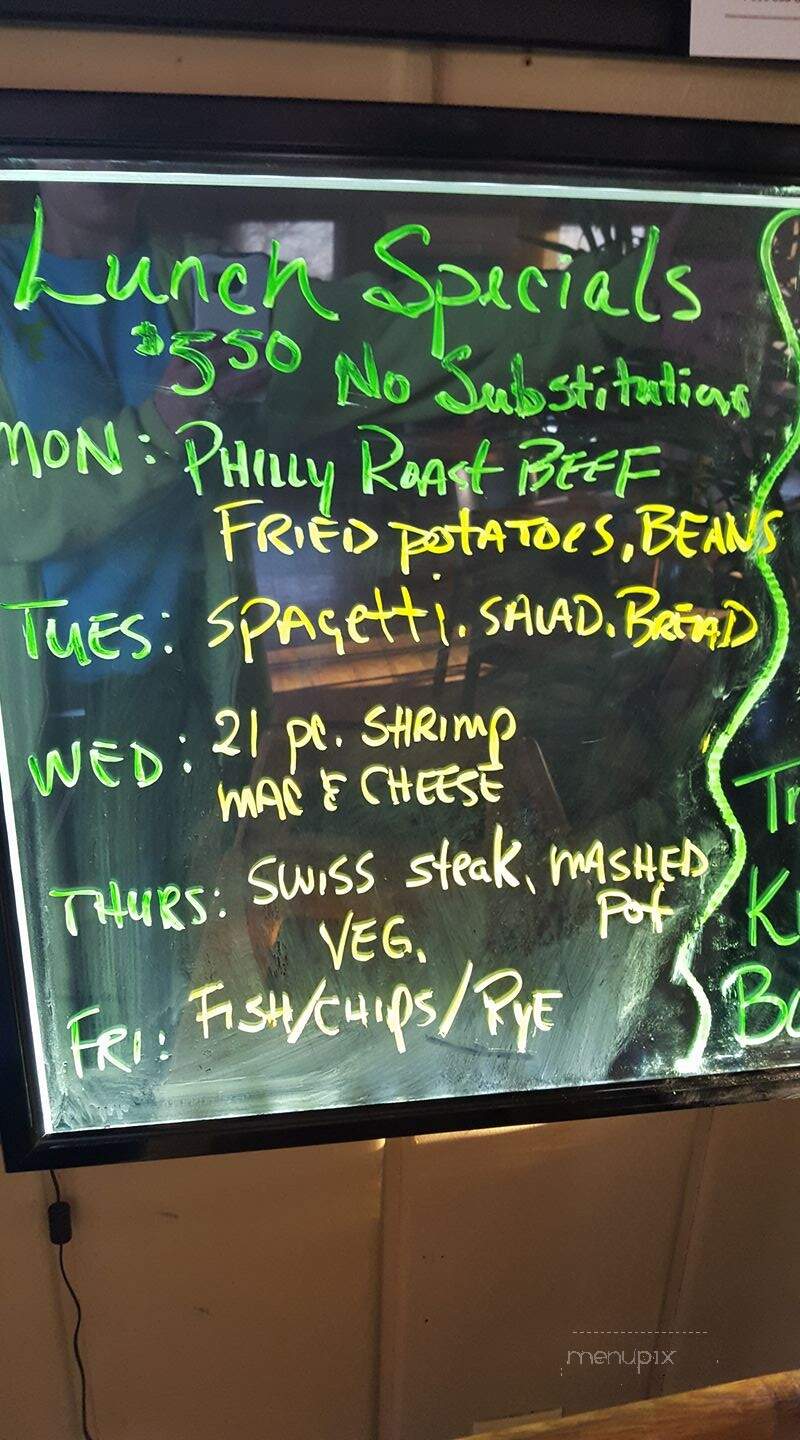 Lunch Specials
$5 50 No Substitutions
MON: PHILLY ROAST BEEF
FRIED POTATOES, BEANS
TUES: SPAGETTI. SALAD. BREAD
WED: 21 pc. SHRIMP
MAC & CHEESE
THURS: SWISS Steak, MASHED
Pot
VEG.
FRI: FISH/CHIPS/RYE
menupix